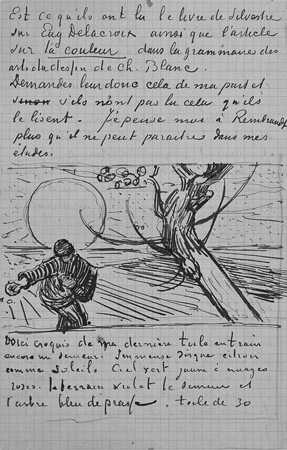 Est ce qu'ils ont lu le livre de Silvestre
sur Eug Delacroix ainsi que l'article
sur la couleur dans la grammaire des
arts du dessin de Ch. Blanc.
Demandes leur donc cela de ma part et
sinon s'ils n'ont pas lu cela qu'ils
le lisent. J'epense moi à Rembrandt
plus qu'il ne peut paraitre dans mes
études.
Voici croquis de ma dernière toile en train
encore un semeur. Immense disque citron
comme soleil. Ciel vert jaune à nuages
roses. le terrain violet le semeur et
l'arbre bleu de prusse. toile de 30